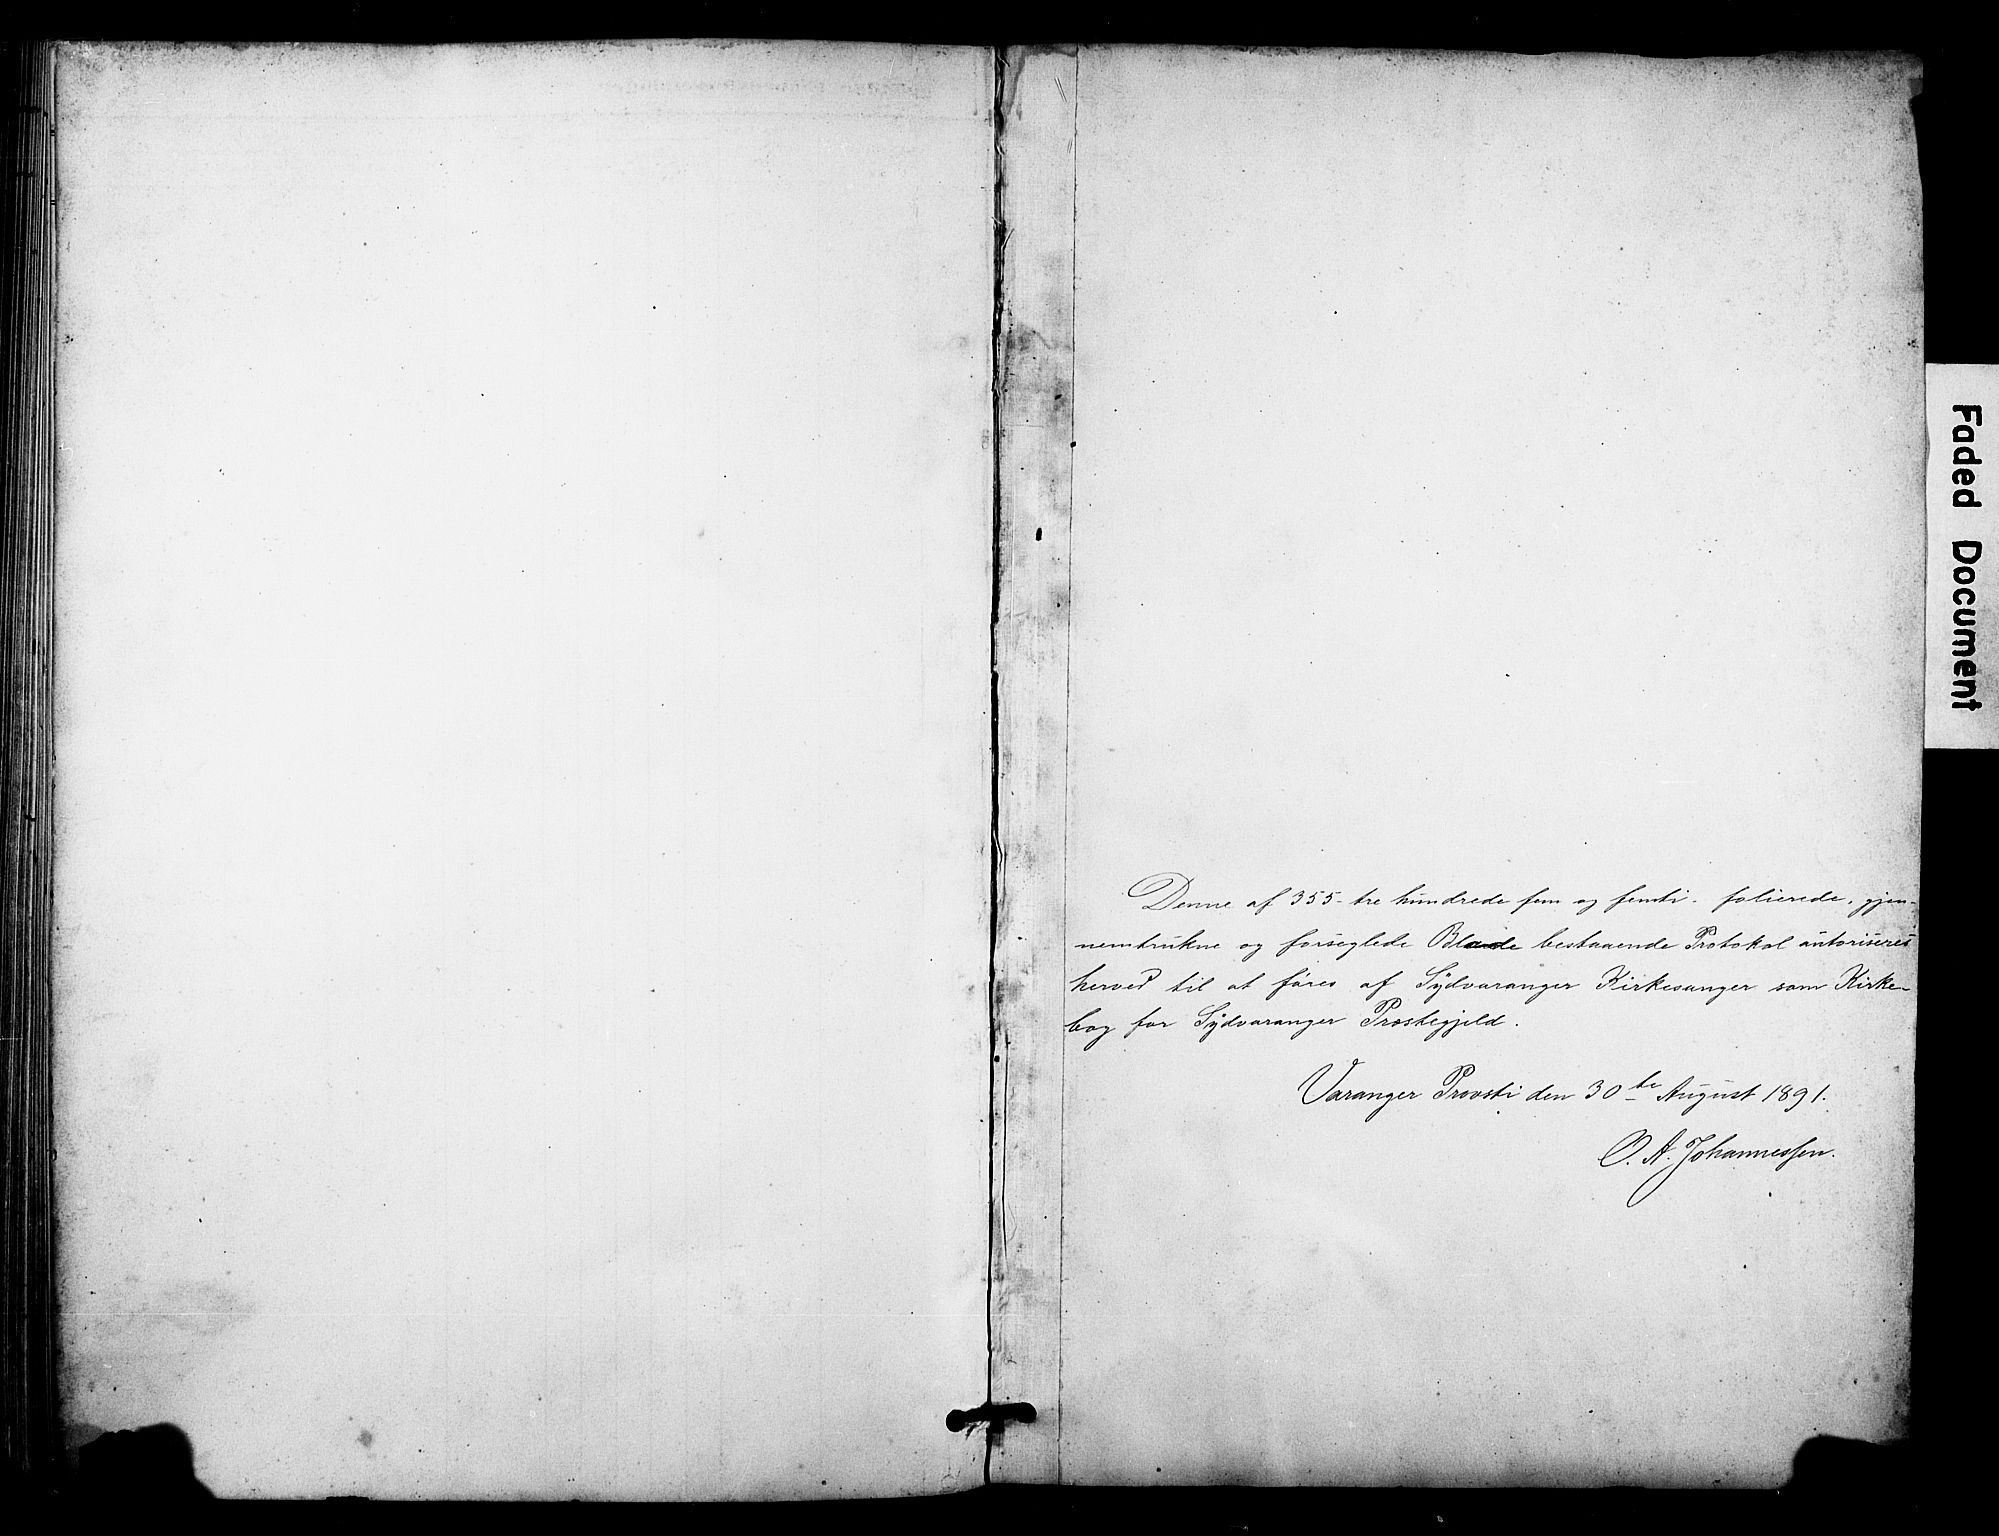 Denne af 355 - tre hundrede fem og femti - folierede, gjen-
nemtrukne og forseglede Blade bestaaende Protokol autoriseres
herved til at føres af Sydvaranger Kirkesanger som Kirke-
bog for Sydvaranger Præstegjeld.
Varanger Provsti den 30te August 1891.
O. A. Johannessen.
Faded Document